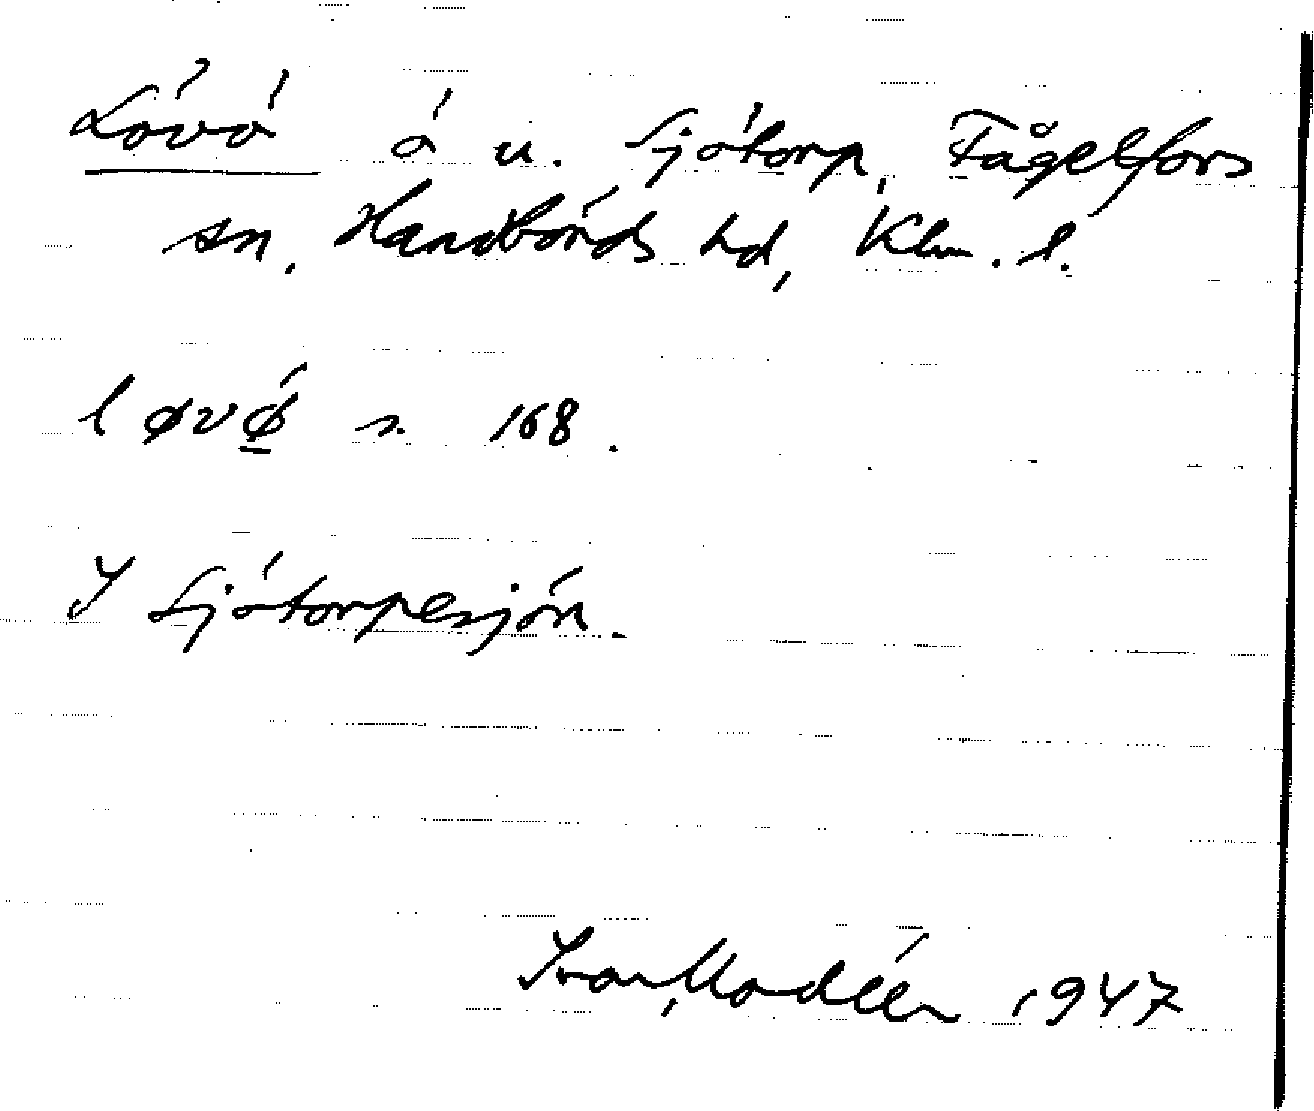 Lövö ö u. Sjötorp, Fågelfors
sn, Handbörds hd, Klm. l.
løvǿ̠ s. 168.
I Sjötorpesjön.
Ivar Modéer 1947